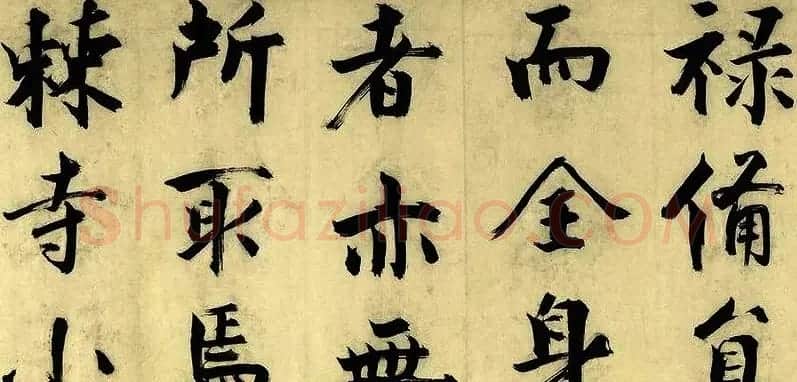 禄備員
而全身
者亦無
所取焉
棘寺小
Shufaziliao.COM